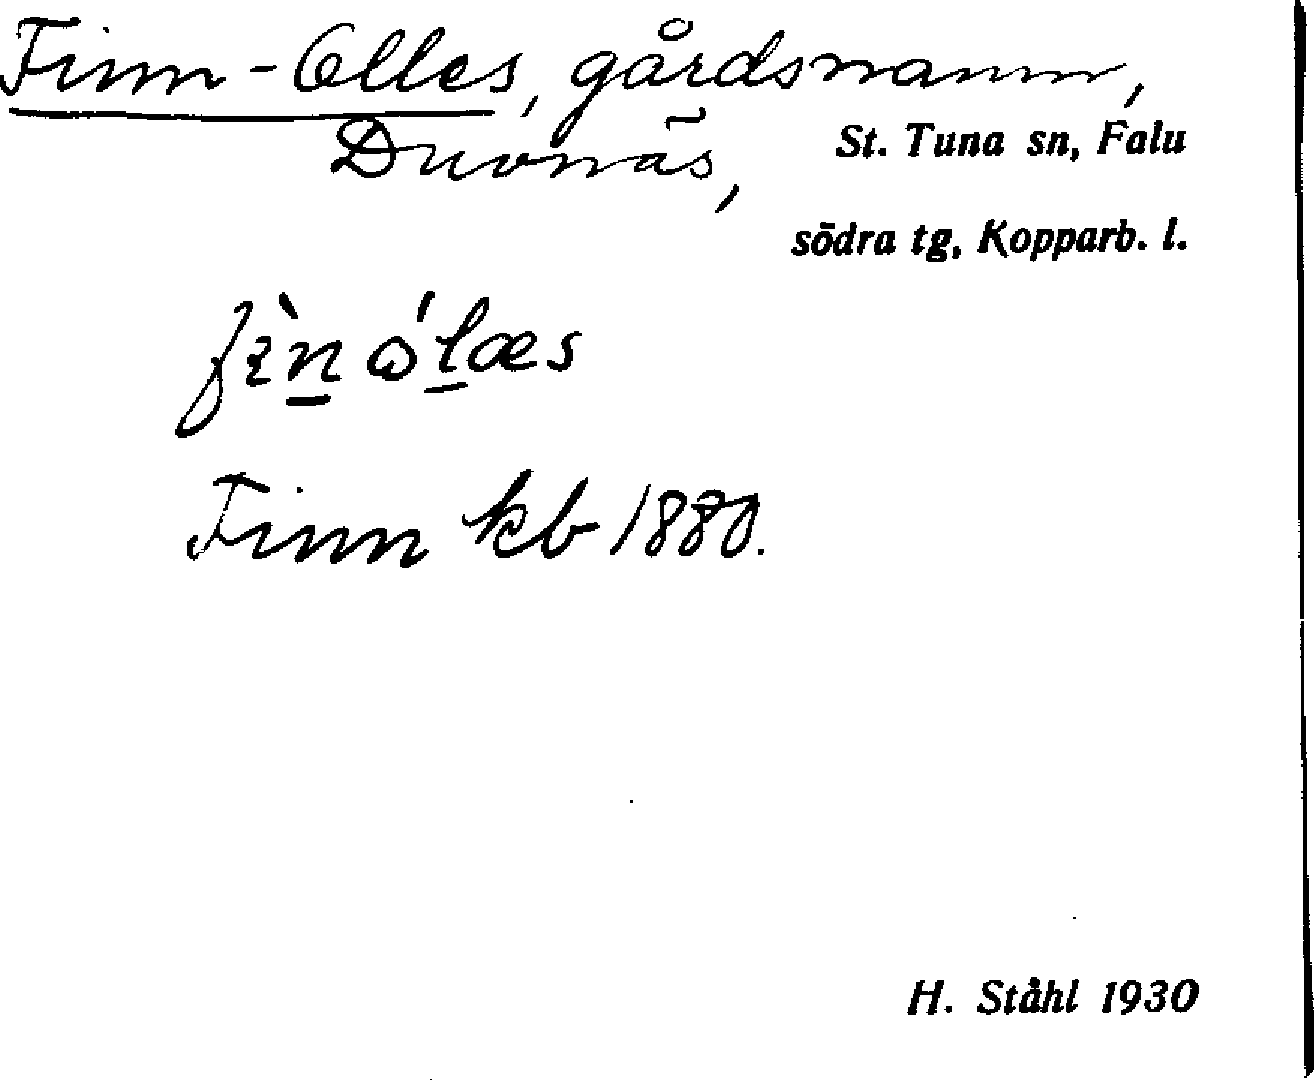 Finn-Olles, gårdsnamn,
Duvnäs, St. Tuna sn, Falu
södra tg, Kopparb. l.
Finn kb 1880.
H. Ståhl 1930